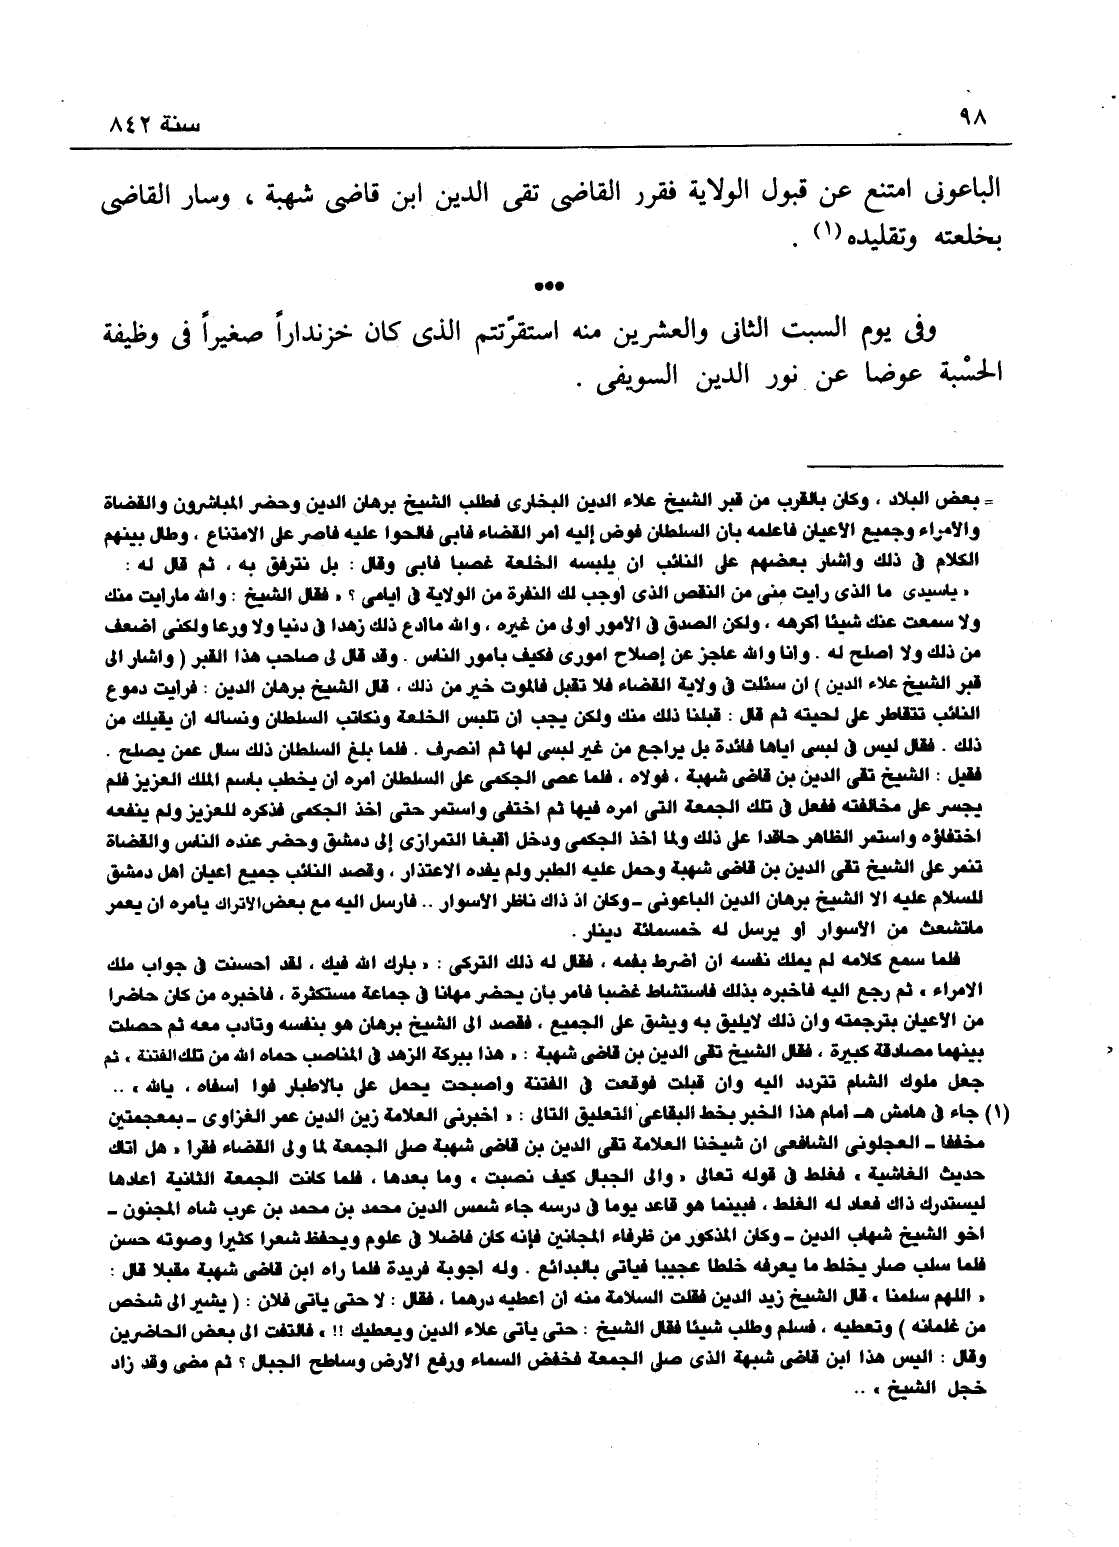 ٩٨
سنة ٨٤٢
الباعونى امتنع عن قبول الولاية فقرر القاضى تقى الدين ابن قاضى شهبة ، وسار القاضى
بخلعته وتقليده(١) .
•••
وفى يوم السبت الثانى والعشرين منه استقرّتتم الذى كان خزنداراً صغيراً فى وظيفة
الحسْبة عوضا عن نور الدين السويفى .
= بعض البلاد ، وكان بالقرب من قبر الشيخ علاء الدين البخارى فطلب الشيخ برهان الدين وحضر المباشرون والقضاة
والامراء وجميع الاعيان فاعلمه بأن السلطان فوض إليه امر القضاء فابى فالحوا عليه فاصر على الامتناع ، وطال بينهم
الكلام فى ذلك واشار بعضهم على النائب ان يلبسه الخلعة غصبا فابى وقال : بل نترفق به ، ثم قال له :
« ياسيدى ما الذى رايت منى من النقص الذى أوجب لك النفرة من الولاية فى ايامى ؟ » فقال الشيخ : والله مارايت منك
ولا سمعت عنك شيئا اكرهه ، ولكن الصدق فى الأمور اولى من غيره ، والله ماادع ذلك زهدا فى دنيا ولا ورعا ولكنى اضعف
من ذلك ولا اصلح له . وانا والله عاجز عن إصلاح امورى فكيف بأمور الناس . وقد قال لى صاحب هذا القبر ( واشار الى
قبر الشيخ علاء الدين ) ان سئلت فى ولاية القضاء فلا تقبل فالموت خير من ذلك ، قال الشيخ برهان الدين : فرايت دموع
النائب تتقاطر على لحيته ثم قال : قبلنا ذلك منك ولكن يجب ان تلبس الخلعة ونكاتب السلطان ونساله ان يقيلك من
ذلك . فقال ليس فى لبسى اياها فائدة بل يراجع من غير لبسى لها ثم انصرف . فلما بلغ السلطان ذلك سال عمن يصلح .
فقيل : الشيخ تقى الدين بن قاضى شهبة ، فولاه ، فلما عصى الجكمى على السلطان امره ان يخطب باسم الملك العزيز فلم
يجسر على مخالفته ففعل فى تلك الجمعة التى امره فيها ثم اختفى واستمر حتى اخذ الجكمى فذكره للعزيز ولم ينفعه
اختفاؤه واستمر الظاهر حاقدا على ذلك ولما اخذ الجكمى ودخل أقبغا التمرازى إلى دمشق وحضر عنده الناس والقضاة
تنمر على الشيخ تقى الدين بن قاضى شهبة وحمل عليه الطبر ولم يفده الاعتذار ، وقصد النائب جميع اعيان اهل دمشق
للسلام عليه الا الشيخ برهان الدين الباعونى – وكان اذ ذاك ناظر الاسوار .. فارسل اليه مع بعض الاتراك يامره ان يعمر
ماتشعث من الاسوار او يرسل له خمسمائة دينار .
فلما سمع كلامه لم يملك نفسه ان اضرط بفمه ، فقال له ذلك التركى : « بارك الله فيك ، لقد احسنت فى جواب ملك
الامراء » ثم رجع اليه فاخبره بذلك فاستشاط غضبا فامر بان يحضر مهانا فى جماعة مستكثرة ، فاخبره من كان حاضرا
من الاعيان بترجمته وان ذلك لايليق به ويشق على الجميع ، فقصد الى الشيخ برهان هو بنفسه وتادب معه ثم حصلت
بينهما مصادقة كبيرة ، فقال الشيخ تقى الدين بن قاضى شهبة : « هذا ببركة الزهد فى المناصب حماه الله من تلك الفتنة ، ثم
جعل ملوك الشام تتردد اليه وان قبلت فوقعت فى الفتنة واصبحت يحمل على بالاطبار فوا اسفاه ، يالله » ..
(١) جاء فى هامش هـ امام هذا الخبر بخط البقاعى التعليق التالى : « اخبرنى العلامة زين الدين عمر الغزاوى – بمعجمتين
مخففا – العجلونى الشافعى ان شيخنا العلامة تقى الدين بن قاضى شهبة صلى الجمعة لما ولى القضاء فقرا « هل اتك
حديث الغاشية » فغلط فى قوله تعالى « والى الجبال كيف نصبت » وما بعدها ، فلما كانت الجمعة الثانية اعادها
ليستدرك ذاك فعاد له الغلط ، فبينما هو قاعد يوما فى درسه جاء شمس الدين محمد بن محمد بن عرب شاه المجنون –
اخو الشيخ شهاب الدين – وكان المذكور من ظرفاء المجانين فإنه كان فاضلا فى علوم ويحفظ شعرا كثيرا وصوته حسن
فلما سلب صار يخلط ما يعرفه خلطا عجيبا فياتى بالبدائع . وله اجوبة فريدة فلما راه ابن قاضى شهبة مقبلا قال :
« اللهم سلمنا » قال الشيخ زيد الدين فقلت السلامة منه ان اعطيه درهما ، فقال : لا حتى ياتى فلان : ( يشير الى شخص
من غلمانه ) وتعطيه ، فسلم وطلب شيئا فقال الشيخ : حتى ياتى علاء الدين ويعطيك !! ، فالتفت الى بعض الحاضرين
وقال : اليس هذا ابن قاضى شهبة الذى صلى الجمعة فخفض السماء ورفع الارض وساطح الجبال ؟ ثم مضى وقد زاد
خجل الشيخ » ..